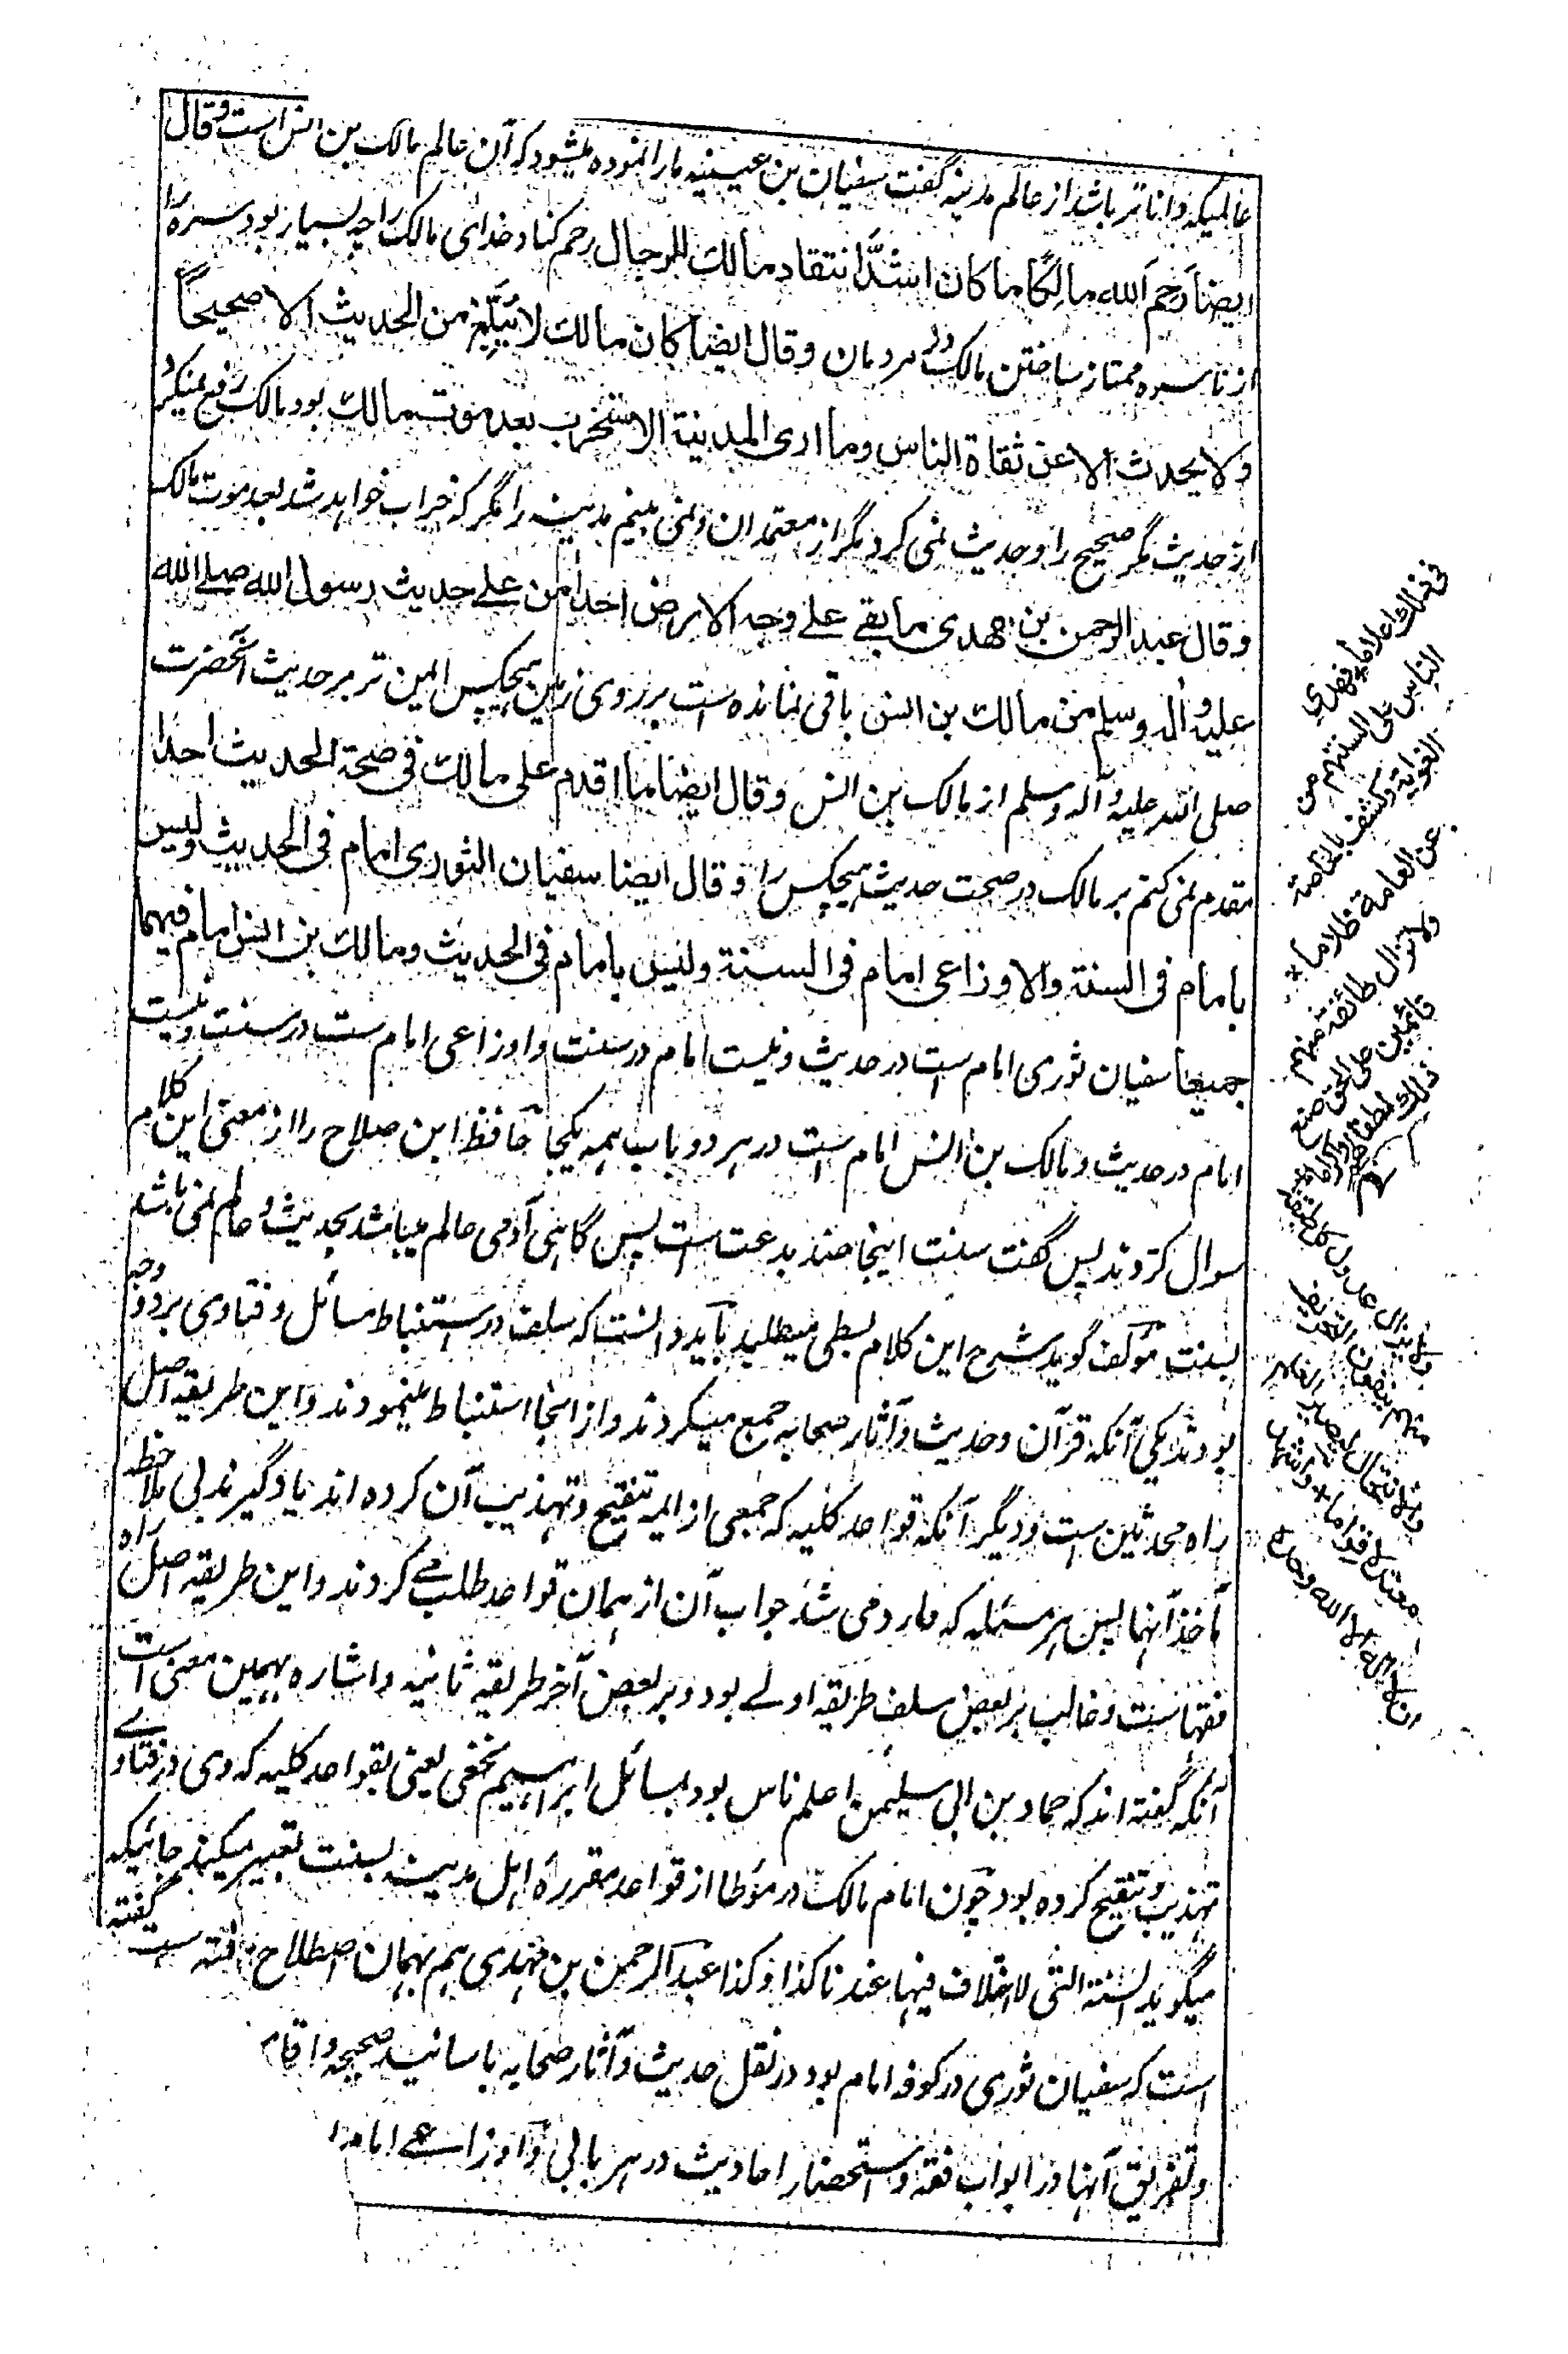 عالمیکه داناتر باشد از عالم مدینه گفت سفیان بن عیینه ما را نموده میشود که آن عالم مالک بن انس است و قال
ایضا رَحِمَ الله مالِكًا ما كان اشدَّ انتقاد مالك للرجال رحم کناد خدای مالک را چه بسیار بود سره را
از ناسره ممتاز ساختن مالک در مردمان و قال ایضا كان مالك لا يبلّغ من الحديث الا صحيحاً
ولا يحدث الا عن ثقاة الناس وما ارى المدينة الا ستخرب بعد موت مالك بود مالک رفع نمیکرد
از حدیث مگر صحیح را و حدیث نمی کرد مگر از معتمدان و نمی بینم مدینه را مگر که خراب خواهد شد بعد موت مالک
وقال عبد الرحمن بن مهدى ما بقے علے وجه الارض احدا من علے حديث رسول الله صلے الله
عليه و اله وسلم من مالك بن انس باقی نمانده است بر روی زمین هیچکس امین تر بر حدیث آنحضرت
صلی الله علیه و آله وسلم از مالک بن انس و قال ایضا ما اقدم على مالك فى صحة الحديث احدا
مقدم نمی کنم بر مالک در صحت حدیث هیچکس را و قال ایضا سفيان الثورى امام فى الحديث وليس
بامام فى السنة والاوزاعى امام فى السنة وليس بامام فى الحديث ومالك بن انس امام فيهما
جميعا سفیان ثوری امام ست در حدیث و نیست امام در سنت و اوزاعی امام ست در سنت و نیست
امام در حدیث و مالک بن انس امام ست در هر دو باب همه یکجا حافظ ابن صلاح را از معنی این کلام
سوال کردند پس گفت سنت اینجا ضد بدعت ست پس گاهی آدمی عالم میباشد بحدیث و عالم نمی باشد
بسنت مؤلف گوید شرح این کلام بسطی میطلبد باید دانست که سلف در استنباط مسائل و فتاوی بر دو وجه
بودند یکی آنکه قرآن و حدیث و آثار صحابه جمع میکردند و از انجا استنباط مینمودند و این طریقه اصل
راه محدثین ست و دیگر آنکه قواعد کلیه که جمعی از ائمه تنقیح و تهذیب آن کرده اند یاد گیرند بی ملاحظه
مأخذ آنها پس هر مسئله که وارد می شد جواب آن از همان قواعد طلب مے کردند و این طریقه اصل راه
فقهاست و غالب بر بعض سلف طریقه اولے بود و بر بعض آخر طریقه ثانیه و اشاره بهمین معنی است
آنکه گفته اند که حماد بن ابی سلیمن اعلم ناس بود بمسائل ابراهیم نخعی یعنی بقواعد کلیه که وی در فتاوے
تهذیب و تنقیح کرده بود چون امام مالک در مؤطا از قواعد مقرره اهل مدینه بسنت تعبیر میکند جائیکه
میگوید السنة التی لا اختلاف فیها عندنا کذا و کذا عبد الرحمن بن مهدی هم بهمان اصطلاح رفته ست گفته
است که سفیان ثوری در کوفه امام بود در نقل حدیث و آثار صحابه باسانید صحیحه و اقامت
و تفریق آنها در ابواب فقه و استحضار احادیث در هر بابی و اوزاعے امام
الناس على السنتهم من
الغواية وكشف بالخاصة
عن العامة ظلاما*
ولا تزال طائفة منهم
قائمين على الحق
ولا يزال عدول كل طبقة
ان لا اله الا الله وحده